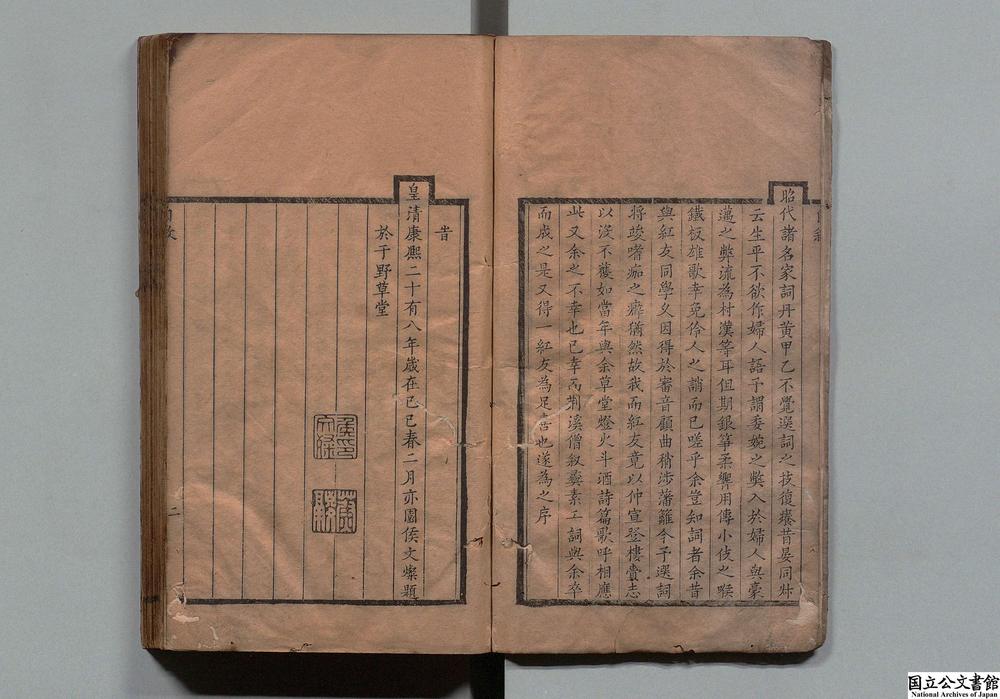 昭代諸名家詞丹黃甲乙不覺選詞之技復癢昔晏同叔
云生平不欲作婦人語予謂委婉之弊入於婦人與豪
邁之弊流為村漢等耳但期銀箏柔響用傳小伎之喉
鐵板雄歌幸免伶人之誚而已嗟乎余豈知詞者余昔
與紅友同學又因得於審音顧曲稍涉藩籬今予選詞
將竣嗜痂之癖猶然故我而紅友竟以仲宣登樓賫志
以沒不獲如當年與余草堂燈火斗酒詩篇歌呼相應
此又余之不幸也已幸而荆溪僧叙彝素工詞與余卒
而成之是又得一紅友為足喜也遂為之序
旹
皇清康熙二十有八年歲在己巳春二月亦園侯文燦題
於于野草堂
侯印
文燦
二
国立公文書館
National Archives of Japan